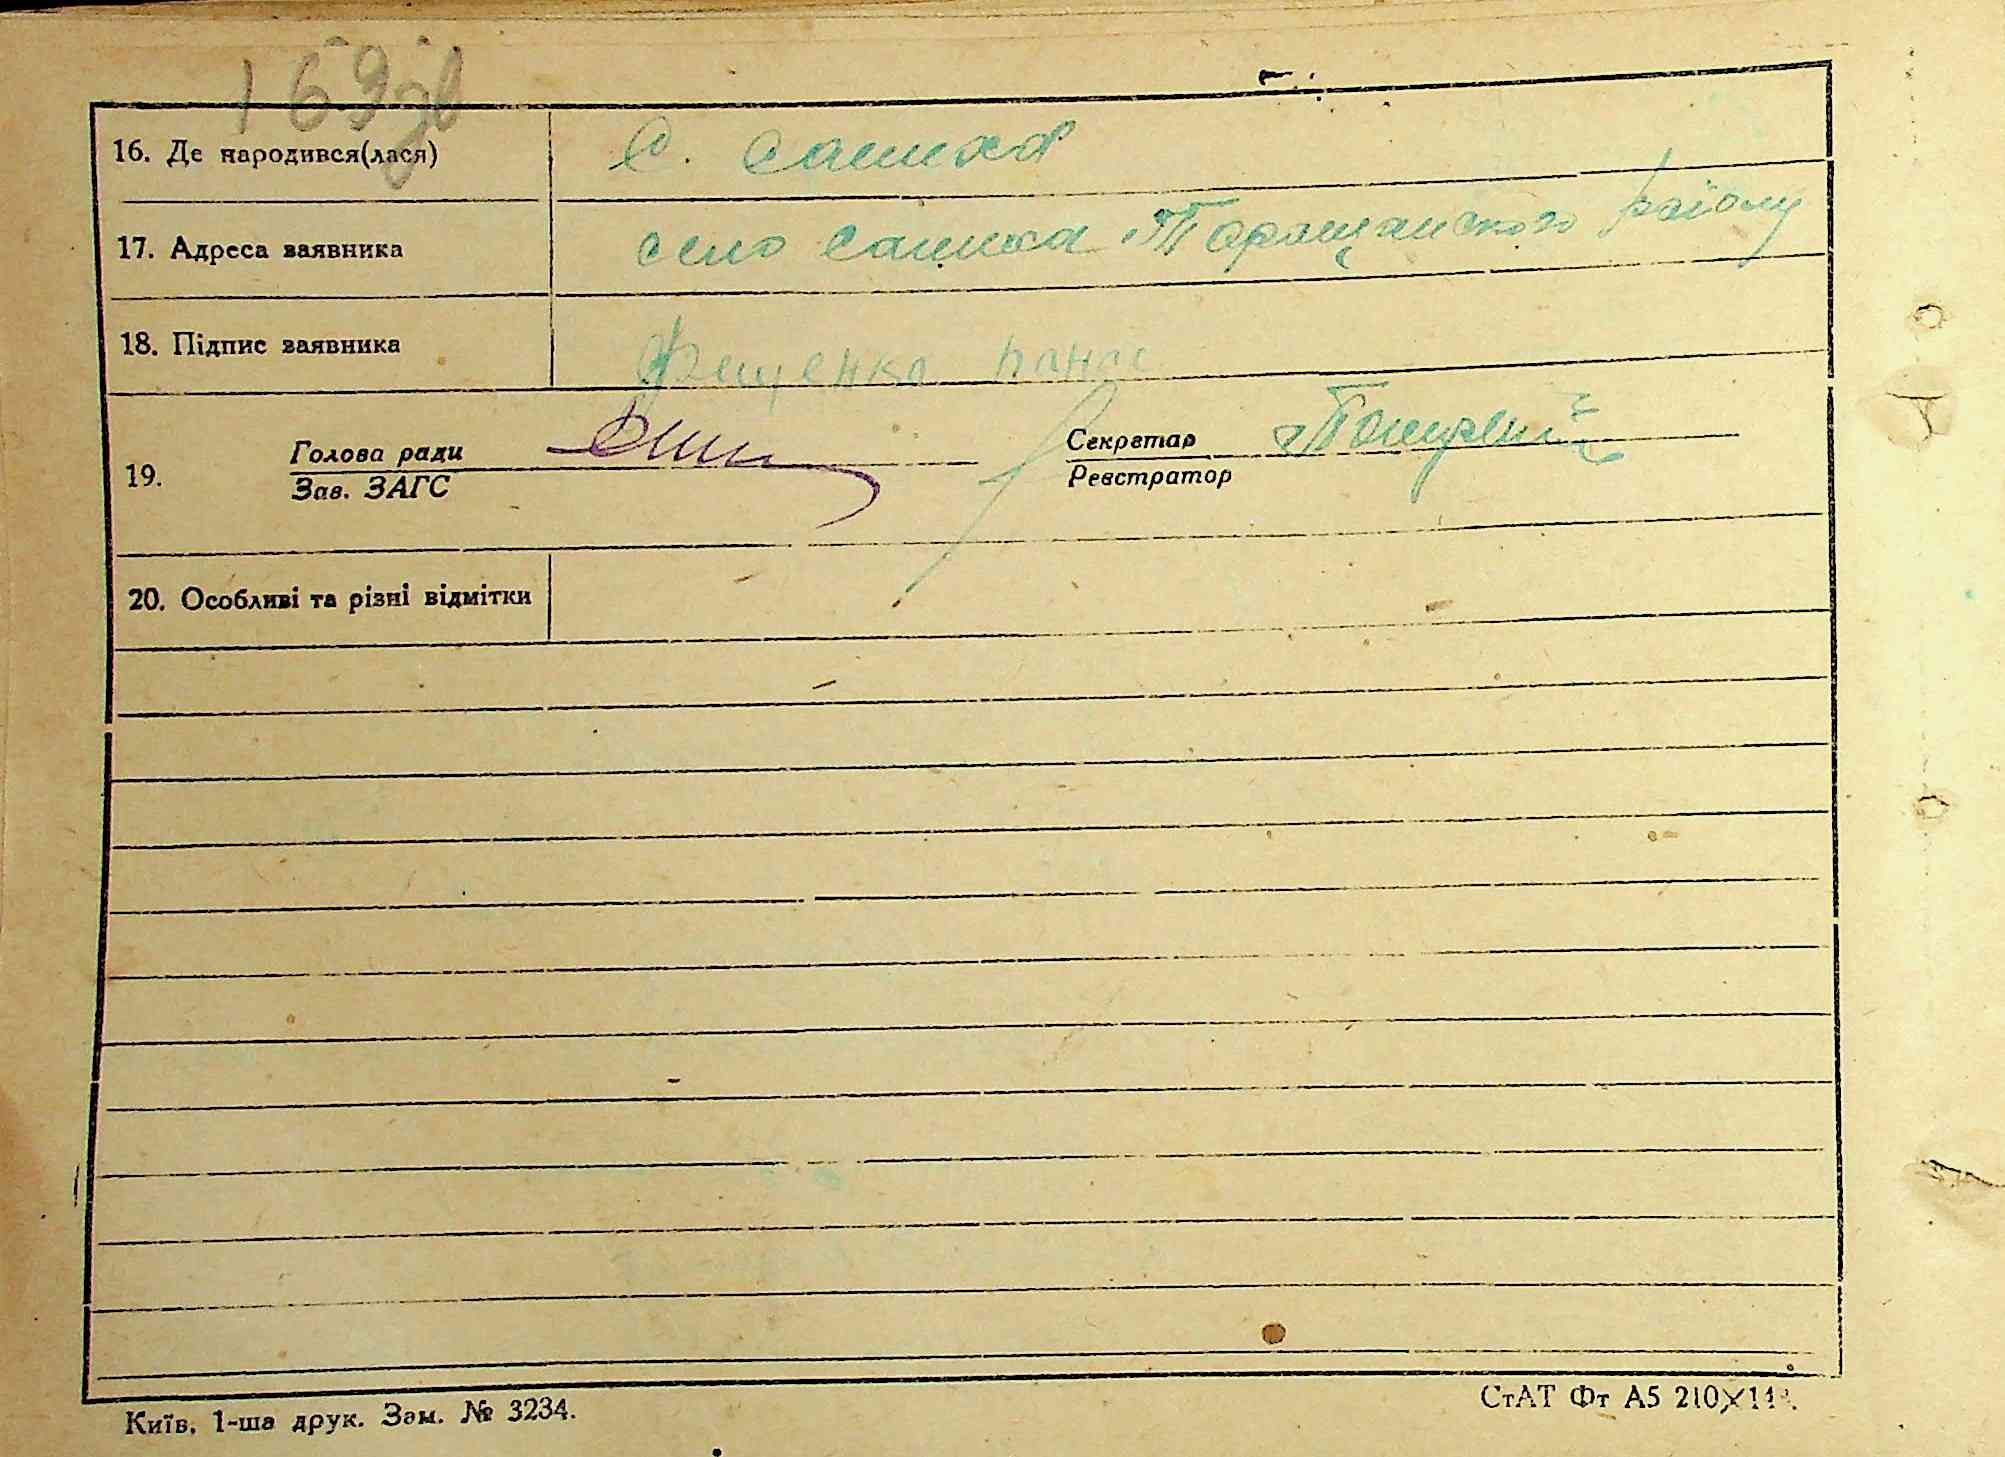 169зв
16. Де народився(лася) С. Сашка
17. Адреса заявника село Сашка Таращанского району
18. Підпис заявника Фещенко Панас
19. Голова ради Секретар
Зав. ЗАГС Реєстратор
20. Особливі та різні відмітки
Київ, 1-ша друк. Зам. № 3234.
СтАТ Фт А5 210×148.